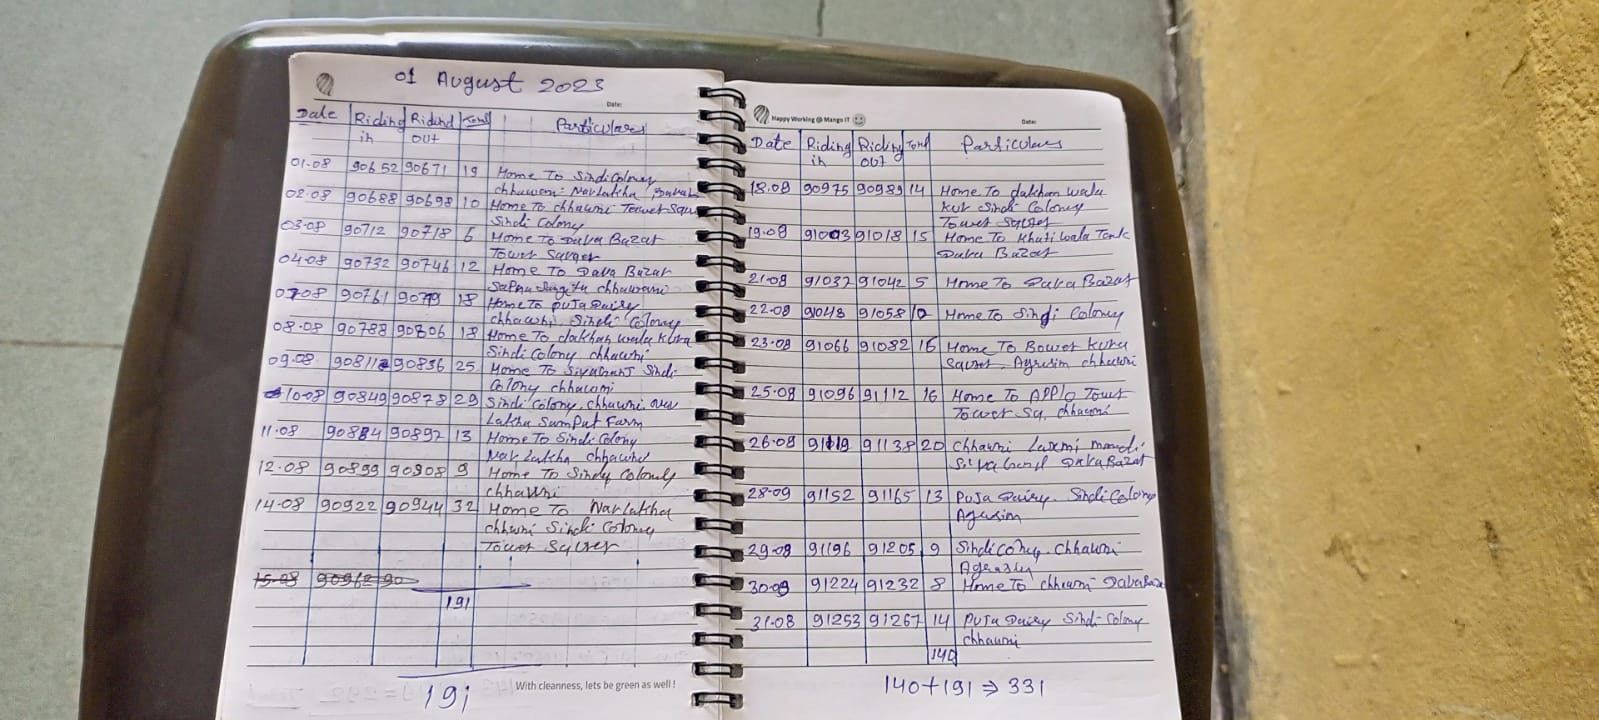 01 August 2023
Date:
Date Riding Ridind Total Particulars
in out
01.08 90652 90671 19 Home To Sindi Coloney
chhawani Navlakha
02.08 90688 90698 10 Home To chhawni Tower Squ
Sindi Colony
03.08 90712 90718 6 Home To Dava Bazar
Tower Sqrer
04.08 90732 90746 12 Home To Dava Bazar
Sapna Sangita chhawani
07.08 90761 90779 18 Home To puja Dairy
chhawni, Sindi Coloney
08.08 90788 90806 18 Home To dakhan wala Kuva
Sindi Colony chhawni
09.08 90811 90836 25 Home To Siyaganj Sindi
Colony chhawni
10.08 90849 90878 29 Sindi Colony, chhawni,
Lakha Sampat Farm
11.08 90884 90897 13 Home To Sindi Colony
Navlakha chhawni
12.08 90899 90908 9 Home To Sindy Colony
chhawni
14.08 90922 90944 32 Home To Navlakha
chhwni Sindi Coloney
Tower Sqrer
15.08 90962 90
191
191
With cleanness, lets be green as well!
Happy Working @ Mango IT
Date:
Date Riding Riding Total Particulars
in out
18.08 90975 90989 14 Home To dakhan wala
kuv Sindi Coloney
Tower Sqrer
19.08 91003 91018 15 Home To Khati wala Tank
Dava Bazar
21.08 91037 91042 5 Home To Dava Bazar
22.08 91048 91058 10 Home To Sindi Coloney
23.08 91066 91082 16 Home To Bower Kuva
Sqrer, Agrasin chhawni
25.08 91096 91112 16 Home To Applo Tower
Tower Sq, chhawni
26.08 91119 91138 20 Chhawni Laxmi mandi
Siyaganj Dava Bazar
28.09 91152 91165 13 Puja Dairy. Sindi Colony
Agrasin
29.09 91196 91205 9 Sindi Colony. Chhawni
30.09 91224 91232 8 Home To chhawni Dava Baza
31.08 91253 91267 14 Puja Dairy Sindi Colony
chhawni
140
140+191⇒331